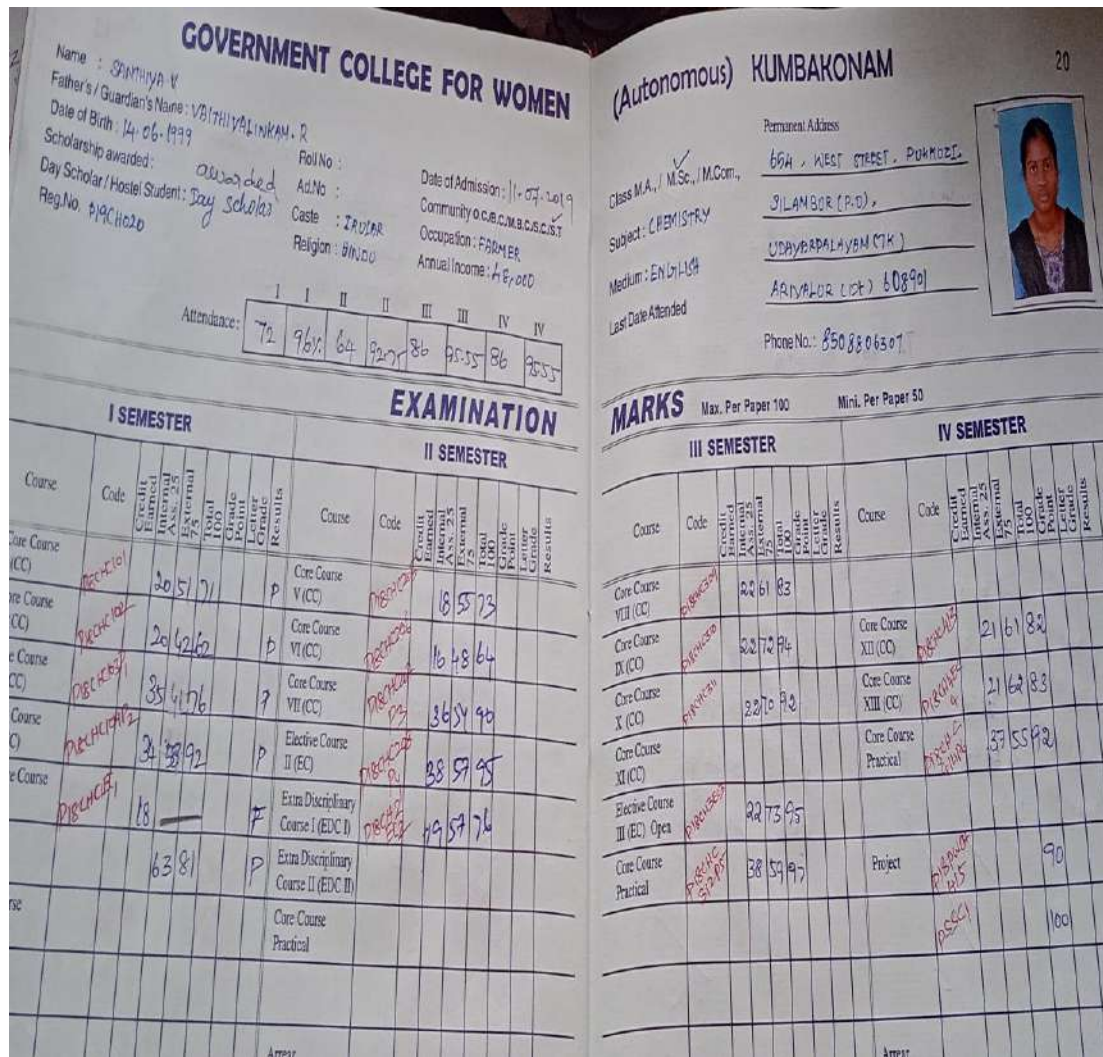 GOVERNMENT COLLEGE FOR WOMEN (Autonomous) KUMBAKONAM
20
Name : SANTHIYA V
Father's / Guardian's Name : VAITHIYALINKAM . R
Date of Birth : 14.06.1999
Scholarship awarded : awarded
Day Scholar / Hostel Student : Day Scholar
Reg.No. P19CH020
Roll No :
Ad.No :
Caste : IRULAR
Religion : HINDU
Date of Admission : 11.07.2019
Community O.C./B.C./M.B.C./S.C./S.T
Occupation : FARMER
Annual Income : 48,000
I I II II III III IV IV
Attendance : 72 96% 64 92.75 86 95.55 86 95.55
Class M.A., / M.Sc., / M.Com.,
Subject : CHEMISTRY
Medium : ENGLISH
Last Date Attended
Permanent Address
65A , WEST STREET,
SILAMBUR (P.O),
UDAYARPALAYAM (TK)
ARIYALUR (Dt) 608901
Phone No. : 8508806307
EXAMINATION MARKS Max. Per Paper 100 Mini. Per Paper 50
I SEMESTER
Course Code Credit Earned Internal Ass. 25 External 75 Total 100 Grade Point Letter Grade Results
Core Course
(CC) P18CHC101 20 51 71 P
Core Course
(CC) P18CHC102 20 42 62 P
Course
(CC) 35 41 76 P
Course
34 58 92 P
Course
18 F
63 81 P
II SEMESTER
Course Code Credit Earned Internal Ass. 25 External 75 Total 100 Grade Point Letter Grade Results
Core Course
V (CC) 18 55 73
Core Course
VI (CC) 16 48 64
Core Course
VII (CC) 36 54 90
Elective Course
II (EC) 38 57 95
Extra Disciplinary
Course I (EDC I) 19 57 76
Extra Disciplinary
Course II (EDC II)
Core Course
Practical
Arrear
III SEMESTER
Course Code Credit Earned Internal Ass. 25 External 75 Total 100 Grade Point Letter Grade Results
Core Course
VIII (CC) 22 61 83
Core Course
IX (CC) 22 72 94
Core Course
X (CC) 22 70 92
Core Course
XI (CC)
Elective Course
III (EC) Open 22 73 95
Core Course
Practical 38 59 97
IV SEMESTER
Course Code Credit Earned Internal Ass. 25 External 75 Total 100 Grade Point Letter Grade Results
Core Course
XII (CC) 21 61 82
Core Course
XIII (CC) 21 62 83
Core Course
Practical 37 55 92
Project 90
PSSC1 100
Arrear